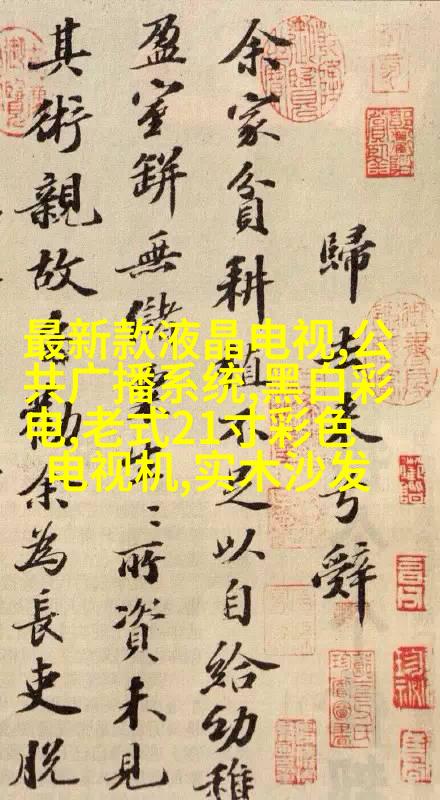 歸去来兮辭
余家貧耕植不足以自給幼稚
盈室缾無儲粟生〻所資未見
其術親故多勸余為長吏脫
最新款液晶电视,公
共广播系统,黑白彩
电,老式21寸彩色
电视机,实木沙发